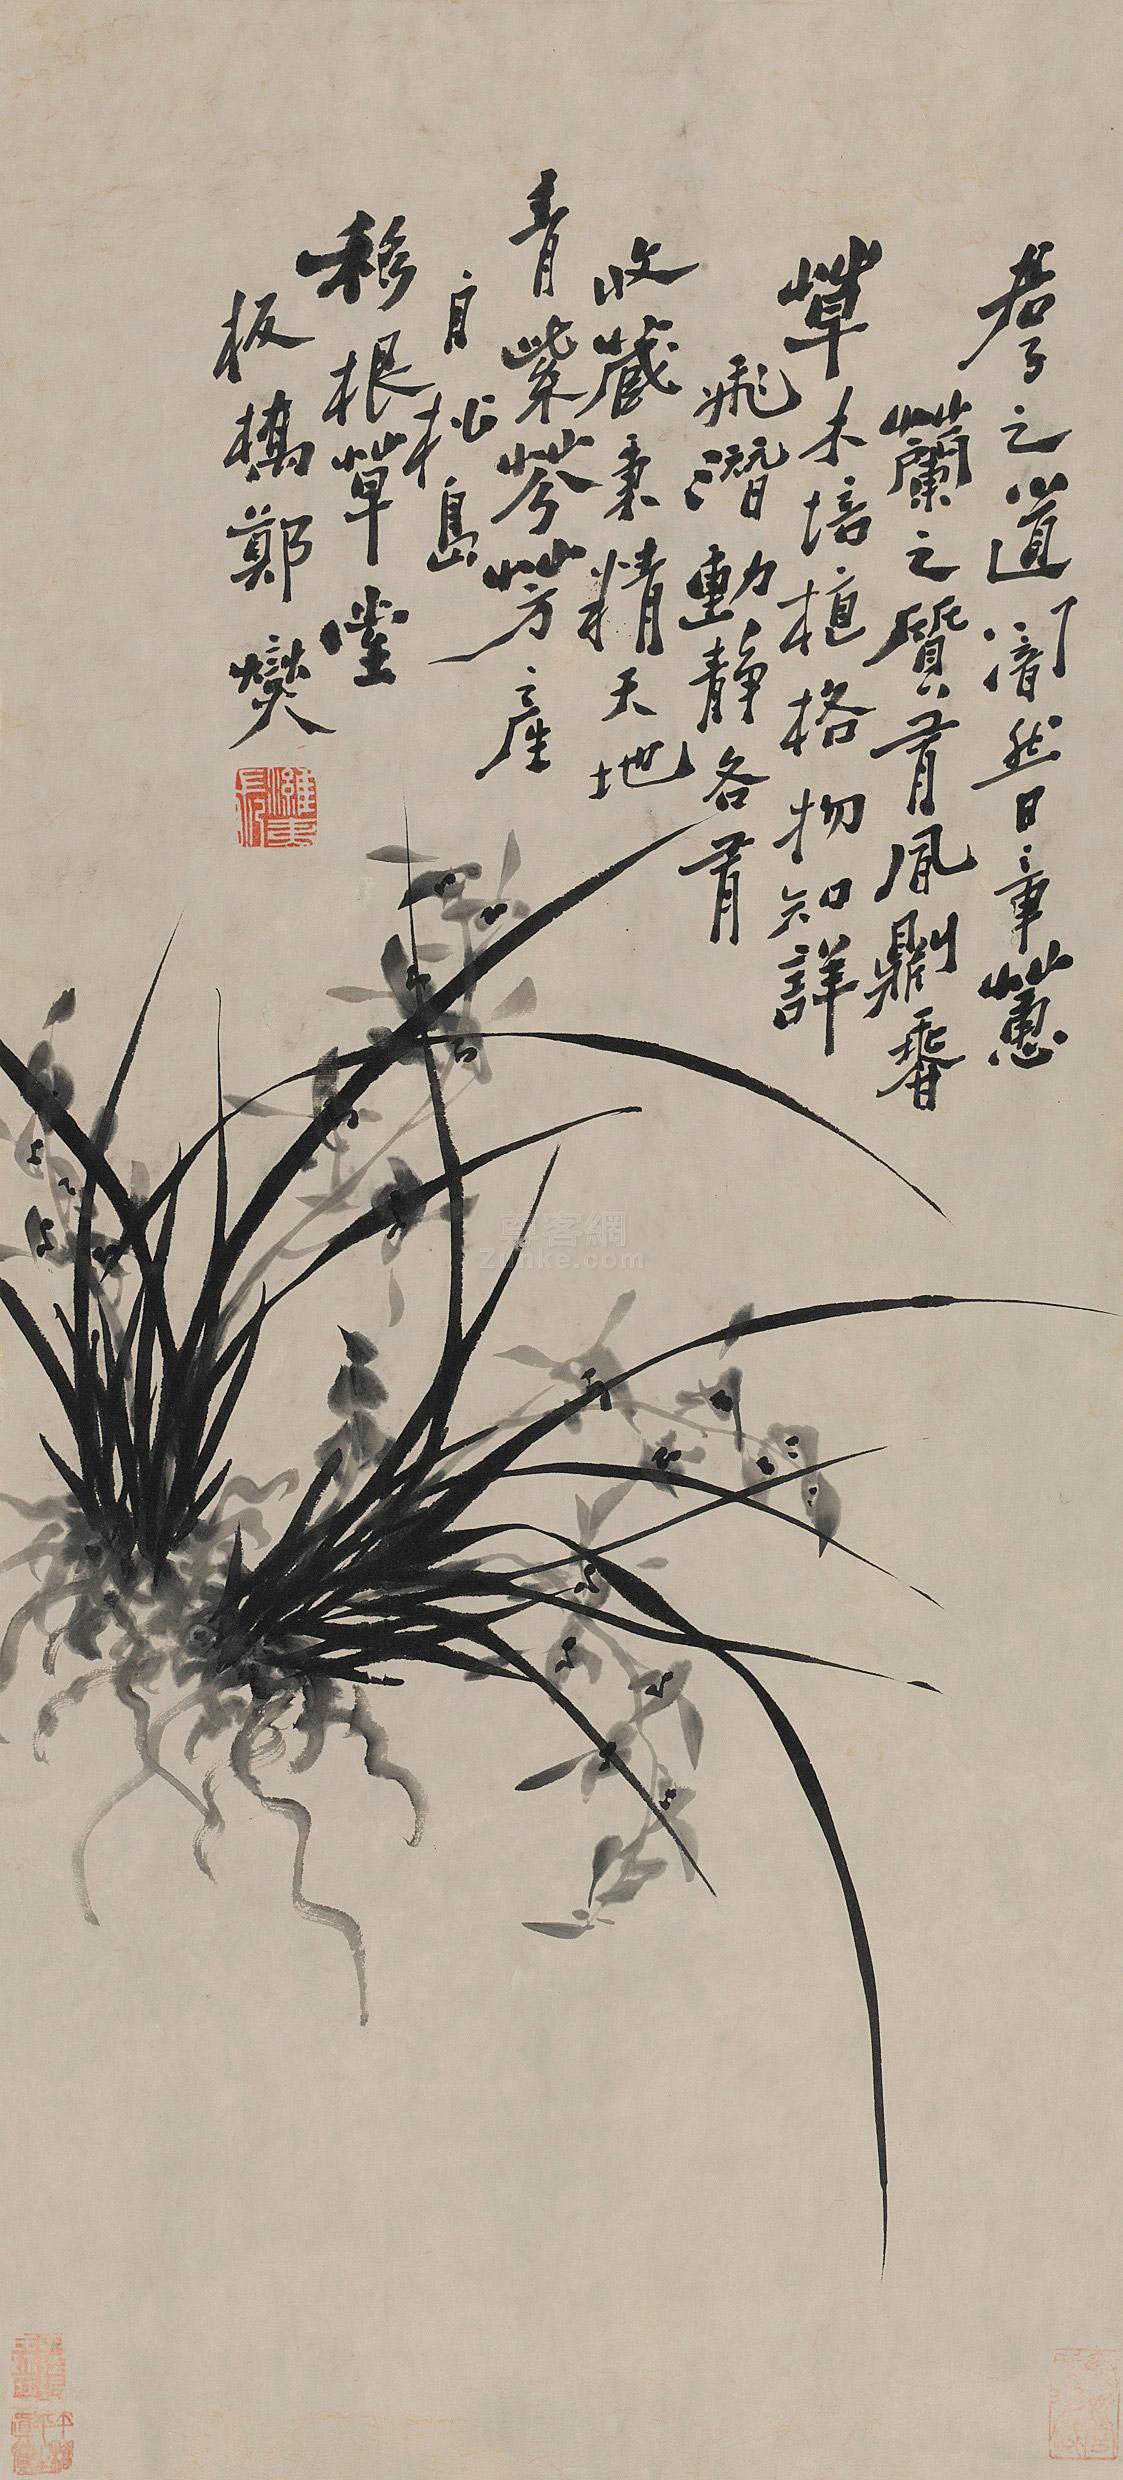 君子之道闇然日章蕙
蘭之質有風剛馨
草木培植格物知詳
飛潛動靜各有
收藏秉精天地
青紫芩芳產
自極島
移根草堂
板橋鄭燮
濰夷長
尊客網
Zunke.com